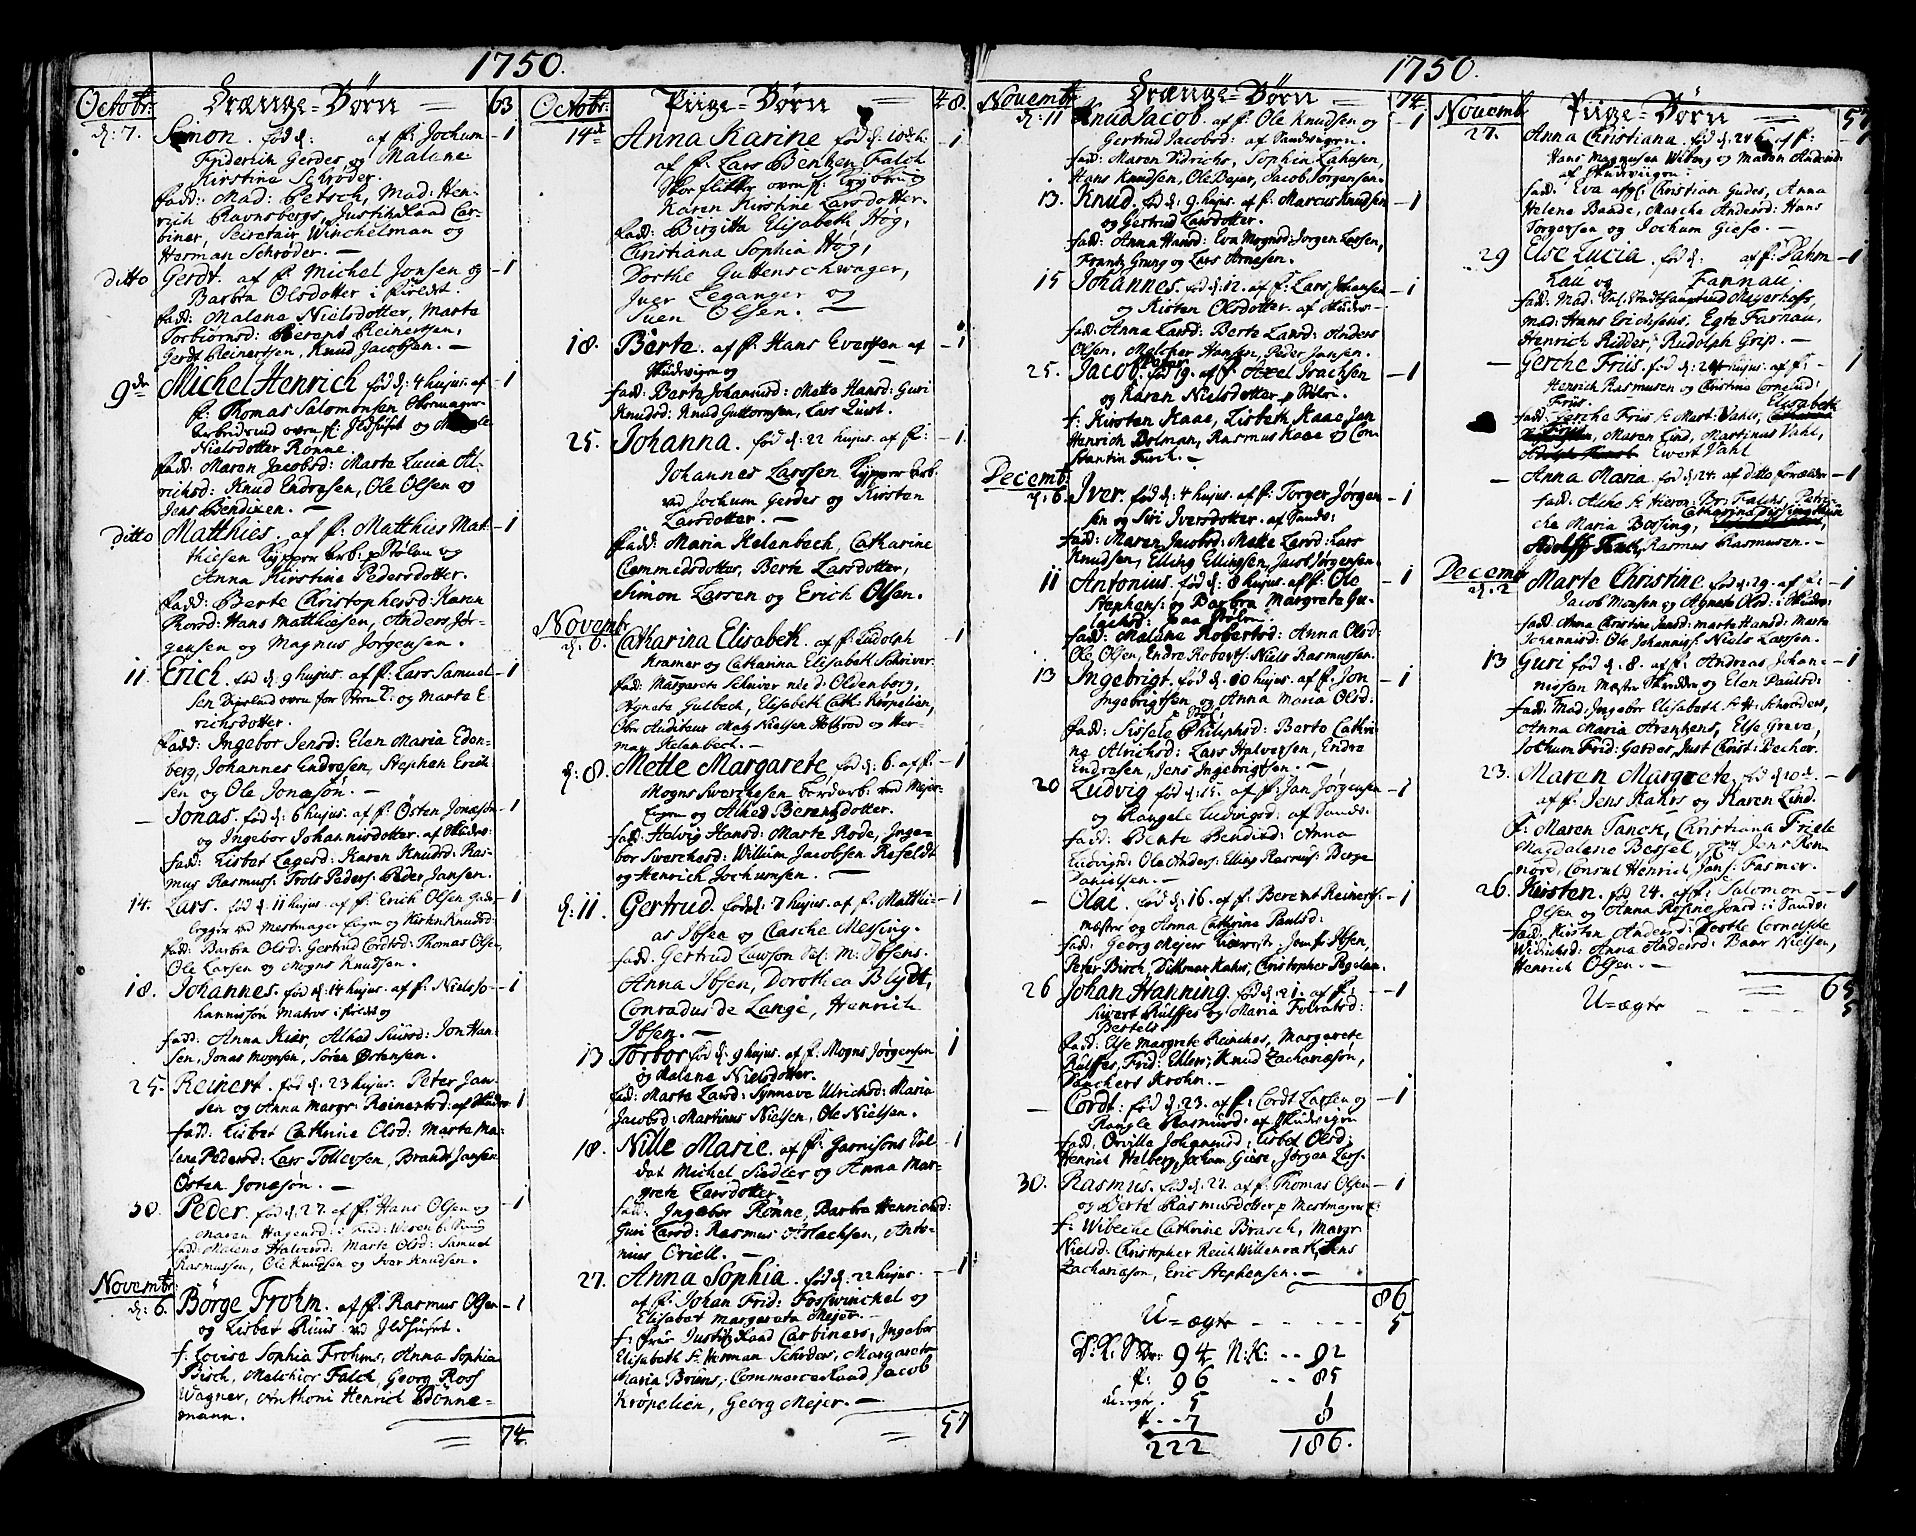 1750.
Octobr: Drænge=Børn 63
d: 7. Simon. fød d: af f: Jochum -1
Friderich Gerdes og Malene
Kirstine Schrøder.
fadd: Mad: Petsch, Mad: Hen-
rich Ravnsbergs, Justitzraad Car-
biner, Secretair Winchelman og
Herman Schrøder. —
ditto Gerdt. af f: Michel Jonsen og -1
Barbra Olsdotter i
fadd: Malene Nielsdotter, Marta
Torbiörnsd: Berent Reinertsen,
Gerdt Reinertsen, Knud Jacobsen. —
9de Michel Henrich fød d: 4 hujus. af -1
f: Thomas Salomonsen
Nielsdotter Rönne.
fadd: Maren Jacobsd: Marta Lucia Al-
richsd: Knud Endresen, Ole Olsen og
Jens Bendixen. —
ditto Matthies. af f: Matthies Mat- -1
thiesen og
Anna Kirstine Pedersdotter.
fadd: Berte Christophersd: Karen
Rorsd: Hans Matthiesen, Anders Jör-
gensen og Magnus Jørgensen.
11. Erich. fød d: 9 hujus. af f: Lars Samuel- -1
sen og Marta E-
richsdotter.
fadd: Ingebor Jensd: Elen Maria Eden-
berg, Johannes Endresen, Stephen Erich-
sen og Ole Jonasøn. —
— Jonas. fød d: 6 hujus. af f: Østen Jonasøn -1
og Ingebor Johannisdotter. af
fadd: Lisbet Lagersd: Karen Knudsd: Ras-
mus Rasmuss: Trols Peders: Peder Jansen.
14. Lars. fød d: 11 hujus. af f: Erich Olsen -1
og Kirsten Knudsd:
fadd: Barbra Olsd: Gertrud Cordtsd: Thomas Olsen,
Ole Larsen og Mogns Knudsen.
18. Johannes. fød d: 14 hujus. af f: Niels Jo- -1
hannissøn Matros i og
fadd: Anna Kiær, Alhed Siursd: Jon Han-
sen, Jonas Mognsen, Søren Ørtensen.
25. Reinert. fød d: 23 hujus. Peter Jan-
sen og Anna Margr: Reinertsd: af -1
fadd: Lisbet Cathrine Olsd: Marta Ma-
lene Pedersd: Lars Tollevsen, Brandt Jansen
Östen Jonasøn. —
30. Peder. fød d: 27. af f: Hans Olsen og -1
Maren Hagensd:
fadd: Malene Halversd: Marte Olsd: Samuel
Rasmussen, Ole Knudsen og Iver Knudsen.
Novembr:
d: 6. Börge Frohm. af f: Rasmus Olsen -1
og Lisbet Ruus. ved
f: Lovise Sophia Frohms, Anna Sophia
Birch, Melchior Falch, Georg Roof
Wagner, Anthoni Henrich Bönne-
mann.
74
Octobr: Piige=Børn 48.
14de Anna Karine fød d: 10de h: -1
af f: Lars Benken Falch
og
Karen Kirstine Larsdotter.
fadd: Birgitta Elisabeth Høg,
Christiana Sophia Høg,
Dorthe Guttenschwager,
Iver Leganger og
Iven Olsen. —
18. Berte. af f: Hans Eversen af -1
Skudevigen og
fadd: Berta Johansd: Matte Hansd: Guri
Knudsd: Knud Guttormsen, Lars Quist.
25. Johanna. fød d: 22 hujus. af f: -1
Johannes Larssen
ved Jochum Gerdes og Kirsten
Larsdotter. —
fadd: Maria Kelenbech, Catharine
Clammedsdotter, Berte Larsdotter,
Simon Larsen og Erich Olsen.
Novembr:
d: 6. Catharina Elisabeth. af f: Ludolph -1
Kramer og Catharina Elisabeth Schriver.
fadd: Margareta Schriver née d: Oldenberg,
Agneta Gulbech, Elisabeth Cath: Kröpelien,
Obr Auditeur Matz Nielsen og Her-
man Kelenbech. —
d: 8. Mette Margarete, fød d: 6. af f: -1
Mogns Sverchesen ved Mejer
og Alhed Berentsdotter.
fadd: Helvig Hansd: Marte Rode, Inge-
bor Sverchesd: Willum Jacobsen Refeldt
og Henrich Jochumsen. —
d: 11. Gertrud. fød d: 7 hujus. af f: Matthi- -1
as Ibsen og Clasche Messing.
fadd. Gertrud Lawson Sal. M: Ibsens.
Anna Ibsen, Dorothea Blydt,
Conradus de Lange, Henrich
Ibsen. —
13 Torbor fød d: 9 hujus. af f: Mogns Jørgensen 1
og Malene Nielsdotter.
fad: Marta Larsd: Synneve Ulrichsd: Maria
Jacobsd: Martinus Nielsen, Ole Nielsen.
18. Nille Marie. af f: Garnisons Sol- -1
dat Michel Siedler og Anna Mar-
grete Larsdotter.
fadd: Ingebor Rönne, Barbra Henrichsd:
Guri Larsd: Rasmus Aslachsen, Anto-
nius Oriell. —
27. Anna Sophia. fød d: 22 hujus. -1
af f: Johan Frid: Fosswinckel og
Elisabet Margareta Mejer.
f: Frue Justitzraad Carbiners, Ingebor
Elisabeth Sr Herman Schrøders, Margareta
Maria Bruns, Commerceraad, Jacob
Kröpelien, Georg Mejer. —
57
1750.
Novembr: Drænge=Børn 74
d: 11 Knud Jacob. af f: Ole Knudsen og -1
Gertrud Jacobsd: af Sandvigen.
fadd: Maren Didrichs, Sophia Lahesen,
Hans Knudsen, Ole Bejer, Jacob Jørgensen.
13. Knud. fød d: 9 hujus. af f: Marcus Knudsen -1
og Gertrud Larsdotter.
fadd: Anna Hansd: Eva Mognsd: Jørgen Larsen,
Frantz Grung og Lars Arnesen.
15 Johannes. fød d: 12. af f: Lars Johansen -1
og Kirsten Olsdotter. af
fadd: Anna Larsd: Berte Larsd: Anders
Olsen, Melcher Hansen, Peder Jansen.
25. Jacob Peter fød 19. af f: Axel Isachsen -1
og Karen Nielsdotter p
f: Kirsten Kaae, Lisbeth Kaae, Jan
Henrich Bolman, Rasmus Kaae og Con-
stantin Turch. —
Decembr:
d: 6. Iver. fød d: 4 hujus. af f: Torger Jørgen- -1
sen og Siri Iversdotter. af Sands:
fadd: Maren Jacobsd: Mette Larsd: Lars
Knudsen, Elling Ellingsen, Jacob Jørgensen.
11 Antonius. fød d: 8 hujus. af f: Ole -1
Stephens: og Barbra Margreta Gu-
lachsd: paa
fadd: Malena Robertsd: Anna Olsd:
Ole Olsen, Endre Roberts: Niels Rasmussen.
13 Ingebrigt. fød d: 10 hujus. af f: Jon -1
Ingebrigtsen og Anna Maria Olsd:
fadd: Sissele Philipsd: Berto Cathri-
ne Alrichsd: Lars Halversen, Endre
Endresen, Jens Ingebrigtsen. —
20 Ludvig fød d: 15. af f: Jan Jørgensen -1
og Rangele Ludvigsd: af Sands:
fadd: Bente Bendixd: Anna
Ludvigsd: Ole Anders: Elling Rasmus: Berge
Danielsen. —
— Olae. fød d: 16. af f: Berent Reinerts: -1
mæster og Anna Cathrina Paulsd:
fadd: Georg Mejers Jomf: Ibsen,
Peter Birch, Dittmar Kahrs, Christopher Pegelau.
26 Johan Hanning. fød d: 21. af f: -1
Sivert Rülffes og Maria Folratsd:
Bertels
fadd: Else Margrete Reinches, Margarete
Rülffes, Frid: Ehlers, Knud Zachariasøn,
Panchers Krohn. —
— Cordt: fød d: 23. af f: Cordt Larsen og -1
Rangle Rasmusd: af Skudevigen
fadd: Orville Johannsd: Lisbet Olsd:
Henrich Helberg, Jochum Giese, Jørgen Lars.
30. Rasmus. fød d: 27. af f: Thomas Olsen -1
og Berte Rasmusdotter p
f: Wibeche Cathrine Brasch, Margr:
Nielsd: Christopher Reich Willenrath, Jens
Zachariasøn, Eric Stephensen. —
86
U=ægte - - - - - 5
94 N:K: - - 92
f: 96 - - 85
u:ægte . 5 1
- - 7 8
222 186.
Novembr Piige=Børn 57
27. Anna Christiana. fød d: 24 af f: -1
Hans Magnussen Wiborg og Maren
af Skudevigen:
fadd: Eva afgl: Christian Gudes, Anna
Helene Baade, Marche Andersd: Hans
Torgersen og Jochum Giese. —
29 Else Lucia. fød d: af f: Palm -1
Lau og Farnau.
fadd: Mad: Sal. Stadthauptmd Mejerhofs,
Mad: Hans Erichsens, Egte Farnau,
Henrich Ridder, Rudolph Grip. —
— Gerche Friis. fød d: 24 hujus. af f: 1
Henrich Rasmusen og Christina Cornelisd:
Friis. Elisabeth
fadd: Gerche Friis Sr Mart: Vahls,
Maren Lind, Martinus Vahl,
Ewert Vahl
— Anna Maria fød d: 24. af ditto Forældre -1
fadd: Alche Sr Hieron: Br: Falchs, Petri-
che Maria Bossing,
Rasmus Rasmusen. —
Decembr
d. 2 Marte Christine. fød d: 29. af f: -1
Jacob Monsen og Agneta Olsd:
fadd: Anna Christina Jansd: Marta Hansd: Marta
Johannisd: Ole Johanniss: Niels Larssen.
13 Guri fød d: 8. af f: Andreas Johan- -1
nissen og Elen Paulsd:
fadd: Mad: Ingebor Elisabeth Sr H: Schrøders,
Anna Maria Arenkens, Else Greve,
Jochum Frid: Gerdes, Just Christ: Decher.
23. Maren Margrete fød d: 20d. -1
af f: Jens Kahrs og Karen Lind.
f: Maren Tanck, Christiana Friele
Magdalene Bessel, Hr: Jens Ren-
nord, Consul Henrich Jans: Fasmer.
26. Kirsten. fød 24. af f: Salomon -1
Olsen og Anna Rosine Jonsd: i Sands:
fadd: Kirsten Andersd: Dorthe Cornelske
Widrichsd: Anna Andersd: Baar Nielsen,
Henrich Olsen. —
65
U=ægte - - - 5